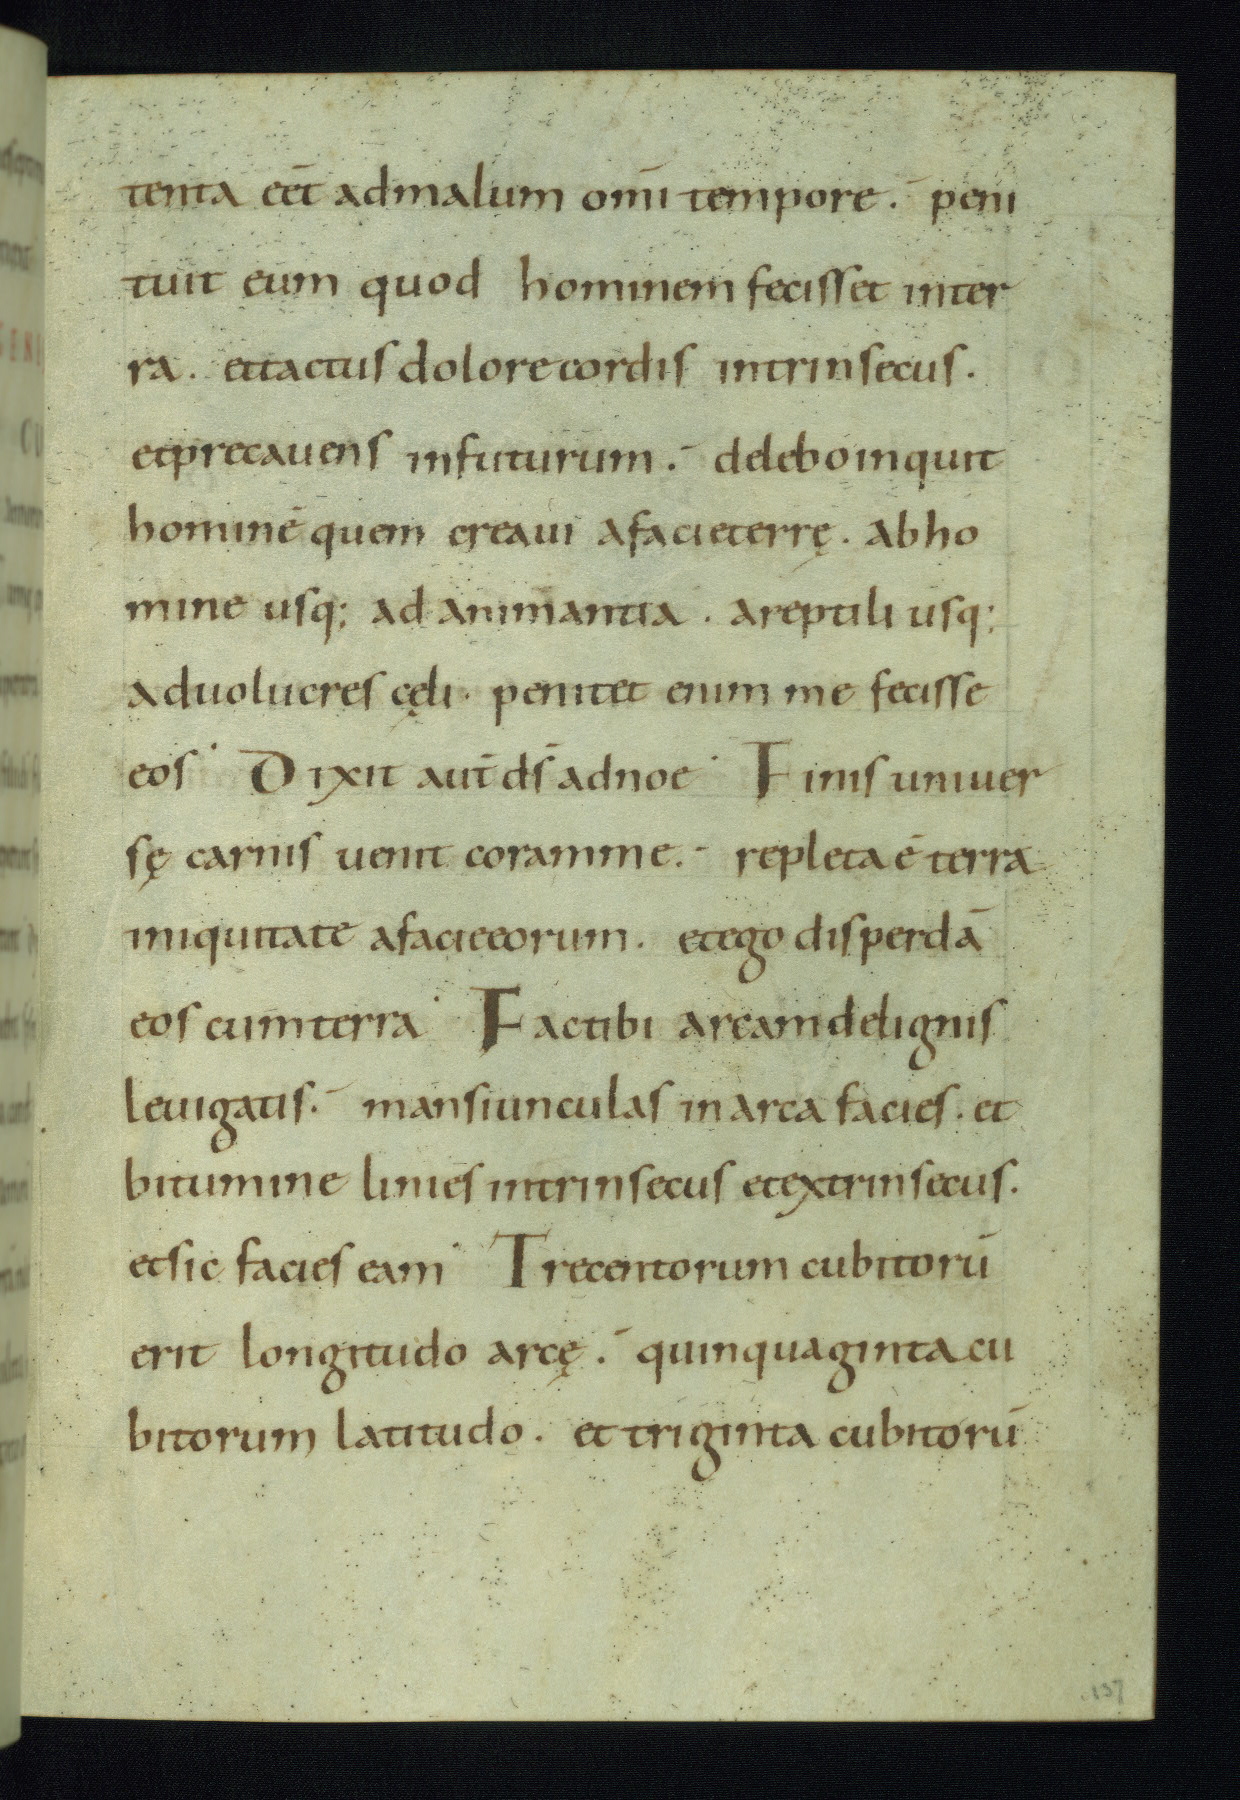 tenta eēt admalum om̄i tempore. peni
tuit eum quod hominem fecisset inter
ra. ettactus dolorecordis intrinsecus.
etprecauens infuturum. deleboinquit
hominē quem creaui afacieterrę. abho
mine usq; ad animantia. areptili usq;
aduolucres cęli. penitet enim me fecisse
eos. Dixit aut̄ ds̄ adnoe. Finis uniuer
sę carnis uenit coramme. repleta ē terra
iniquitate afacieeorum. etego disperdā
eos cumterra. Factibi arcamdelignis
leuigatis. mansiunculas inarca facies. et
bitumine linies intrinsecus etextrinsecus.
etsic facies eam. Trecentorum cubitorū
erit longitudo arcę. quinquaginta cu
bitorum latitudo. et triginta cubitorū
157